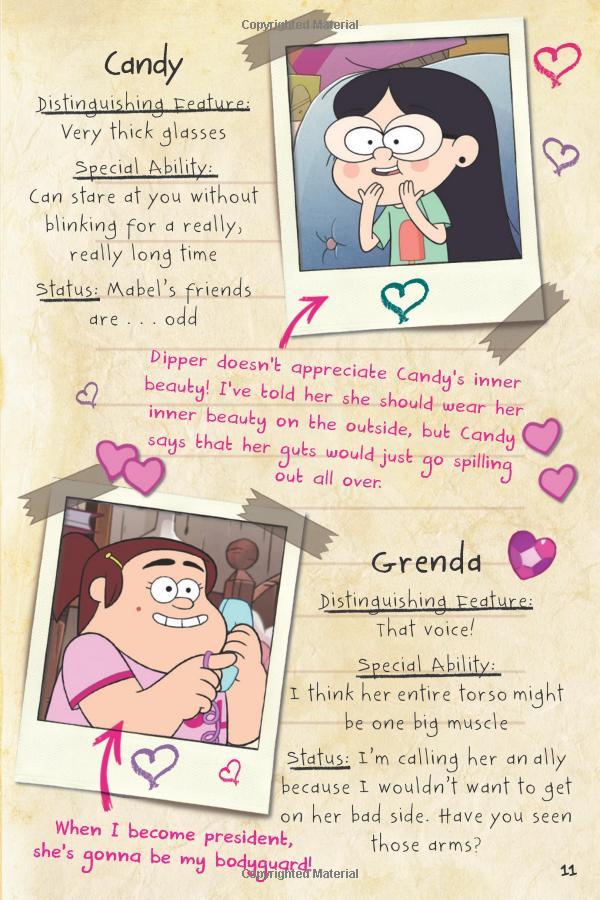 Copyrighted Material
Candy
Distinguishing Feature:
Very thick glasses
Special Ability:
Can stare at you without
blinking for a really,
really long time
Status: Mabel's friends
are . . . odd
Dipper doesn't appreciate Candy's inner
beauty! I've told her she should wear her
inner beauty on the outside, but Candy
says that her guts would just go spilling
out all over.
Grenda
Distinguishing Feature:
That voice!
Special Ability:
I think her entire torso might
be one big muscle
Status: I'm calling her an ally
because I wouldn't want to get
on her bad side. Have you seen
those arms?
When I become president,
she's gonna be my bodyguard!
11
Copyrighted Material